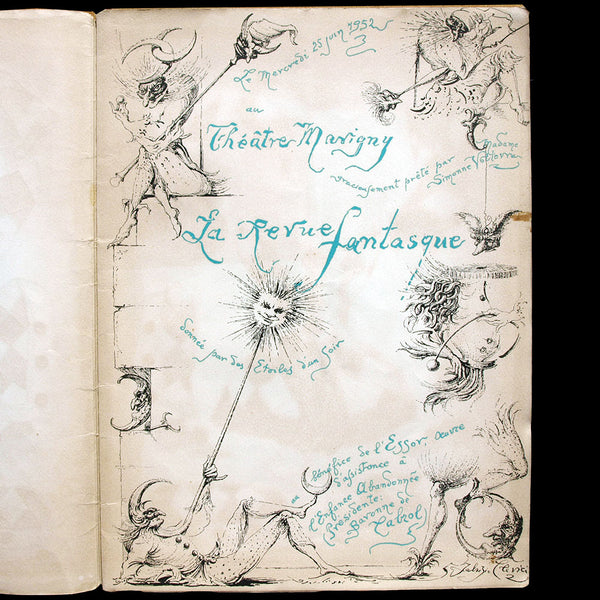 Le Mercredi 25 juin 1952
au
Théâtre Marigny
gracieusement prêté par
Madame
Simonne Volterra
La Revue fantasque
donnée par des Etoiles d'un Soir
au
bénéfice de l'Essor œuvre
d'assistance à
l'Enfance Abandonnée
Présidente:
Baronne de